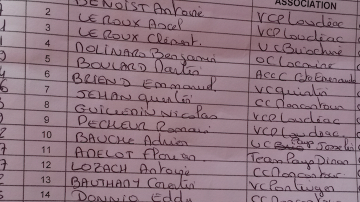 ASSOCIATION
2 BENOIST Antoine VCP Loudéac
3 LE ROUX Axel VCP Loudéac
4 LE ROUX Clément. UC Briochine
5 MOLINARO Benjamin OC Locminé
6 BOULARD Martin ACCC
7 BRIEND Emmanuel VC Quintin
8 JEHAN Quentin CC Moncontour
9 GUILLEMIN Nicolas VCP Loudéac
10 PECHEUR Romain VCP Loudéac
11 BAUCHE Adrien UC Josselin
12 AMELOT Team Pays Dinan
13 LOZACH Antoine CC Moncontour
14 BAUTHAMY Corentin VC Pontivyen
DONNIO Eddy